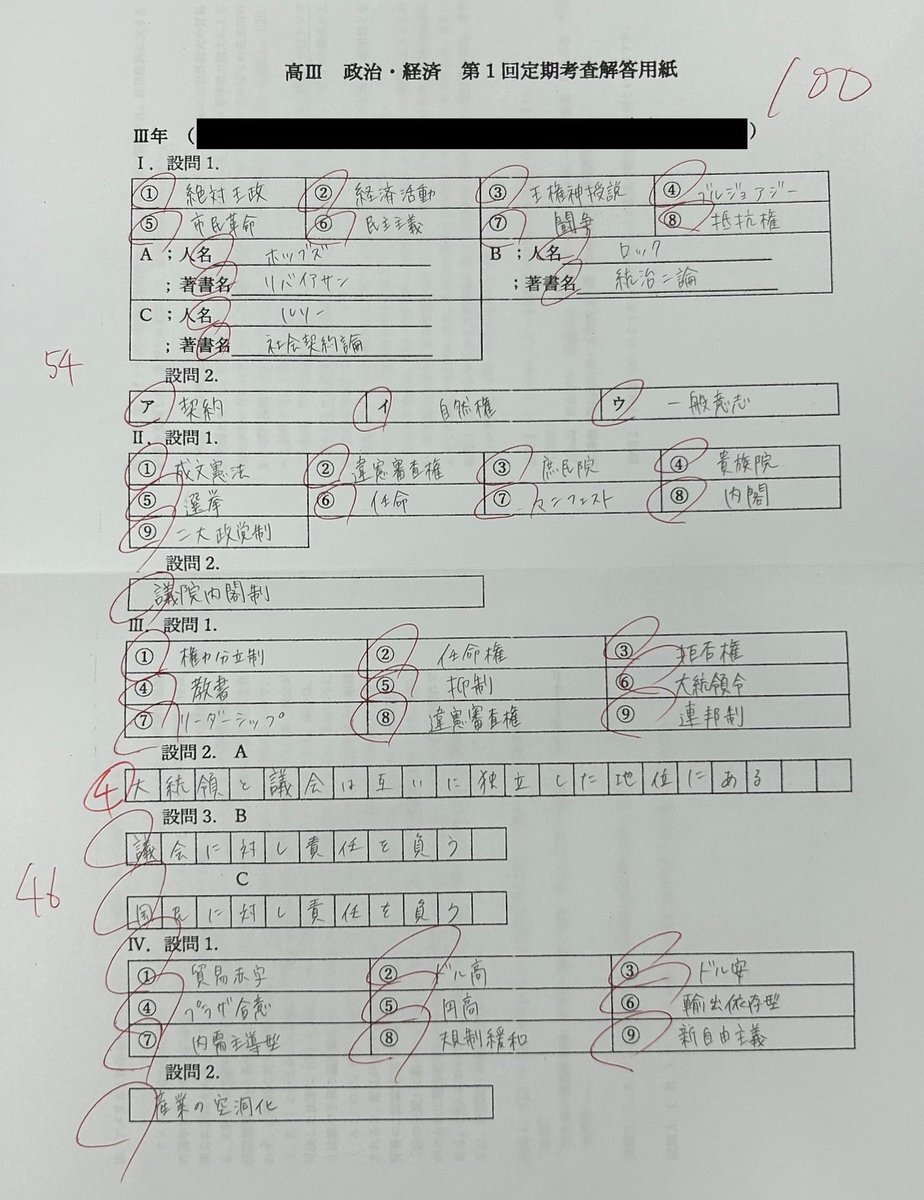 高Ⅲ 政治・経済 第1回定期考査解答用紙
100
Ⅲ年 ( )
Ⅰ. 設問1.
① 絶対王政 ② 経済活動 ③ 王権神授説 ④ ブルジョアジー
⑤ 市民革命 ⑥ 民主主義 ⑦ 闘争 ⑧ 抵抗権
A ;人名 ホッブズ B ;人名 ロック
;著書名 リバイアサン ;著書名 統治二論
C ;人名 ルソー
;著書名 社会契約論
54
設問2.
ア 契約 イ 自然権 ウ 一般意志
Ⅱ. 設問1.
① 成文憲法 ② 違憲審査権 ③ 庶民院 ④ 貴族院
⑤ 選挙 ⑥ 任命 ⑦ マンフェスト ⑧ 内閣
⑨ 二大政党制
設問2.
議院内閣制
Ⅲ. 設問1.
① 権力分立制 ② 任命権 ③ 拒否権
④ 教書 ⑤ 抑制 ⑥ 大統領令
⑦ リーダーシップ ⑧ 違憲審査権 ⑨ 連邦制
設問2. A
④ 大統領と議会は互いに独立した地位にある
設問3. B
議会に対し責任を負う
46
C
国民に対し責任を負う
Ⅳ. 設問1.
① 貿易赤字 ② ドル高 ③ ドル安
④ プラザ合意 ⑤ 円高 ⑥ 輸出依存型
⑦ 内需主導型 ⑧ 規制緩和 ⑨ 新自由主義
設問2.
産業の空洞化